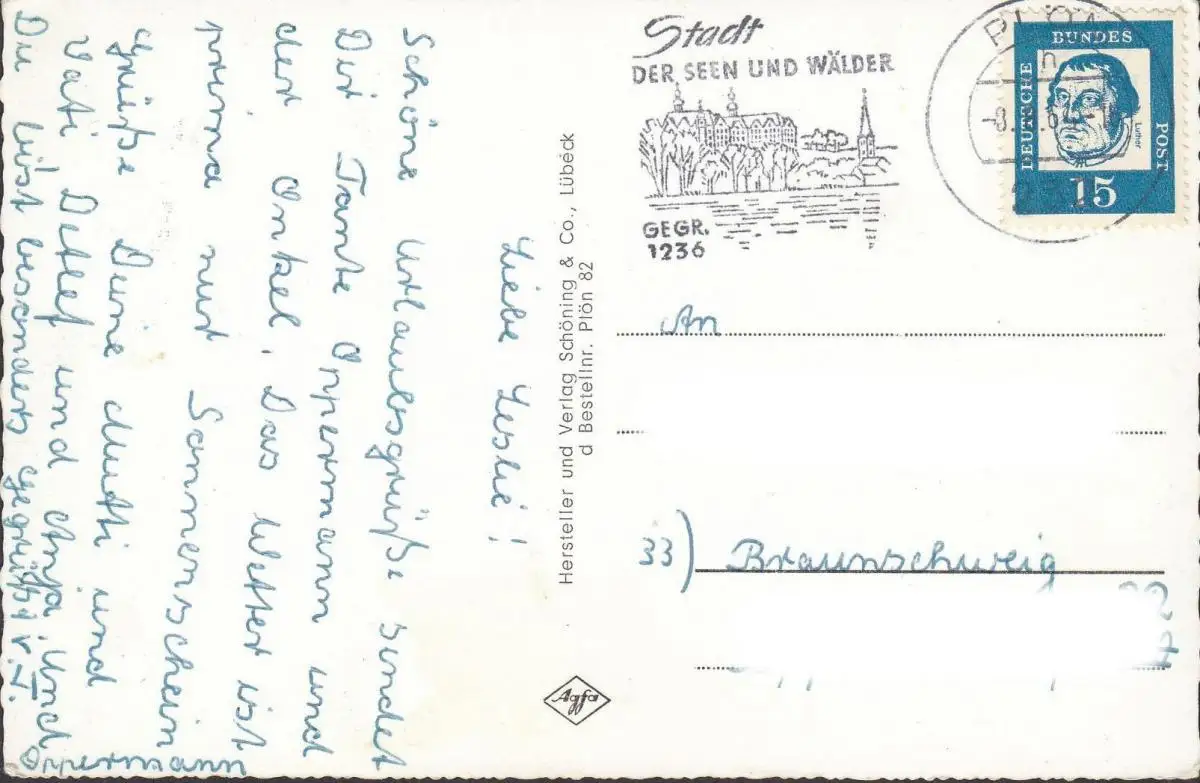 Liebe Leslie!
Schöne Urlaubsgrüße sendet
Dir Tante Oppermann und
der Onkel. Das Wetter ist
prima nur Sonnenschein
Grüße Deine Mutti und
Vati Detlef und Anja. Und
Du bist besonders gegrüßt v. T.
Oppermann
Hersteller und Verlag Schöning & Co., Lübeck
d Bestellnr. Plön 82
Agfa
Stadt
DER SEEN UND WÄLDER
GEGR.
1236
PLÖN
h
DEUTSCHE
BUNDES
POST
Luther
15
An
33) Braunschweig